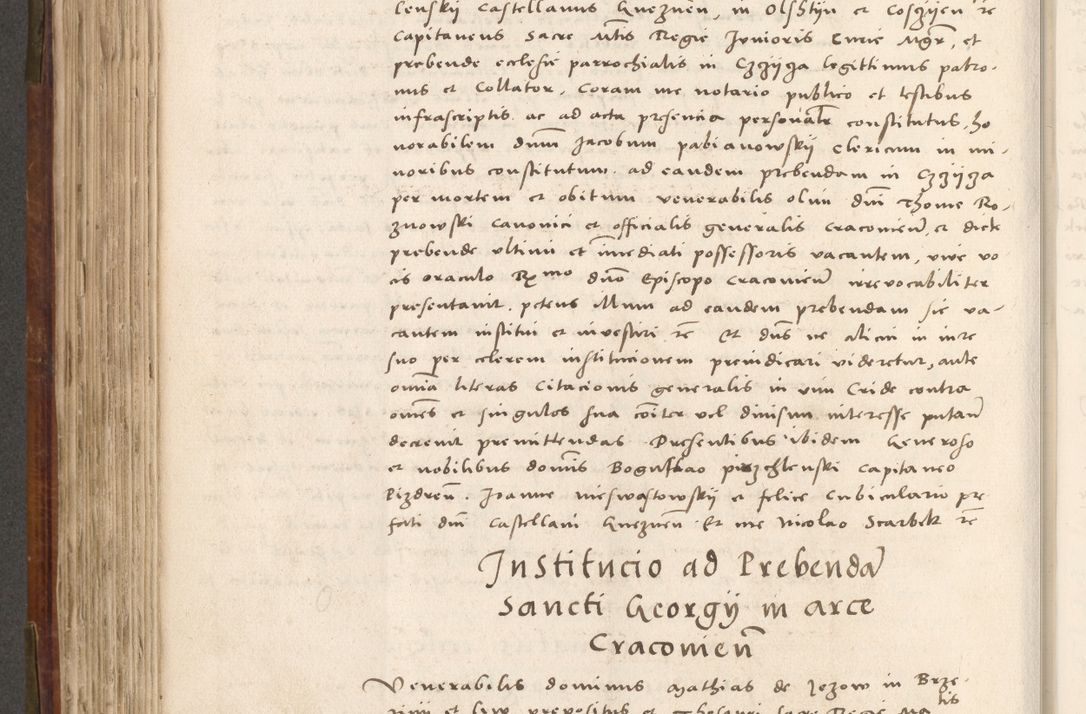 lenskij Castellanus Gneznen, in Olsstijn et Coszijen rc
Capitaneus Sacre Mtis Regie Junioris Curie Mgr, et
prebende ecclesie parrochialis in Czzijza legittimus patro-
nus et Collator, Coram me notario publico et testibus
infrascriptis ac ad acta presencia personaltr constitutus, ho
norabilem dnum Jacobum pabianowskij Clericum in mi-
noribus constitutum ad eandem prebendam in Czzijza
per mortem et obitum venerabilis olim dni Thome Ro-
znowski Canonici et officialis generalis Craconien, et dicte
prebende ultimi et immediati possessoris vacantem, vive vo
cis oraculo Rmo dno Episcopo Craconien irrevocabiliter
presentavit. petens illum ad eandem prebendam sic va-
cantem institui et investiri rc Et dns ne alicui in iure
suo per celerem institucionem preiudicari videretur, ante
omnia literas Citacionis generalis in vim Cride contra
omnes et singulos sua coniter vel divisim interesse putan
decrevit premittendas. Presentibus ibidem Generoso
et nobilibus domnis Boguslao Capitaneo
Pizdren. Joanne nieswastowskij et felice Cubiculario pre
fati dni Castellani Gneznen Et me Nicolao Scarbek rc
Institucio ad Prebendam
Sancti Georgij in arce
Craconien
Venerabilis dominus Mathias de Jezow in Brze-